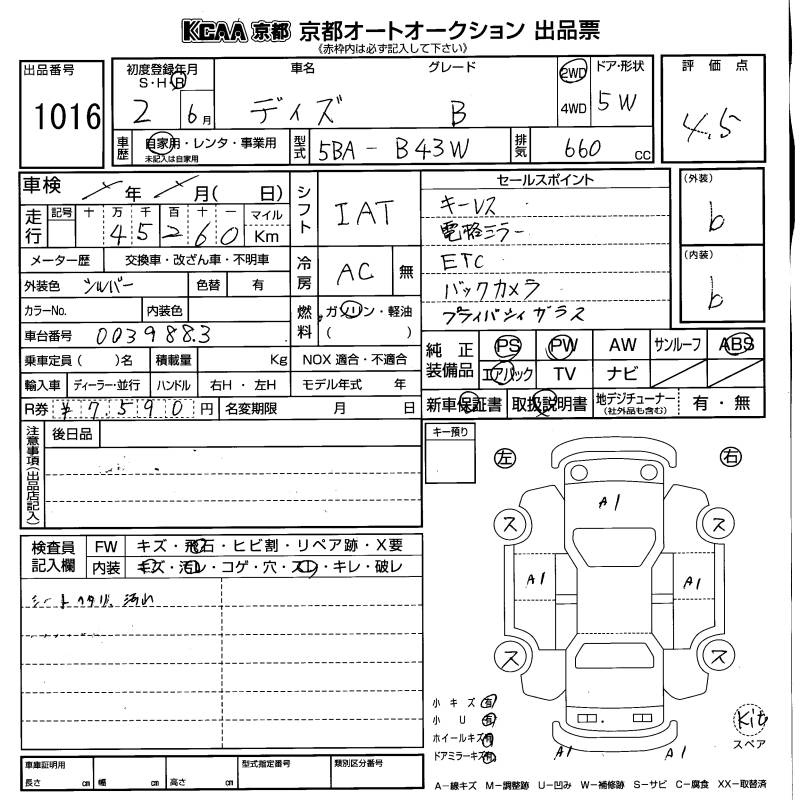 KCAA 京都 京都オートオークション 出品票
《赤枠内は必ず記入して下さい》
出品番号 1016
初度登録年月 S・H・R 2 6月
車名 デイズ
グレード B
2WD 4WD
ドア・形状 5W
評価点 4.5
車歴 自家用・レンタ・事業用
未記入は自家用
型式 5BA-B43W
排気 660 cc
車検 年 月( 日)
シフト IAT
セールスポイント
キーレス
電格ミラー
ETC
バックカメラ
プライバシィガラス
(外装) b
(内装) b
走行 記号 十 万 千 百 十 一 マイル Km
45260
メーター歴 交換車・改ざん車・不明車
冷房 AC 無
外装色 シルバー 色替 有
カラーNo. 内装色
燃料 ガソリン・軽油 ( )
車台番号 0039883
純正装備品 PS PW AW サンルーフ ABS
エアバック TV ナビ
乗車定員( )名 積載量 Kg NOX 適合・不適合
輸入車 ディーラー・並行 ハンドル 右H・左H モデル年式 年
新車保証書 取扱説明書 地デジチューナー(社外品も含む) 有・無
R券 ¥7,590円 名変期限 月 日
注意事項(出品店記入) 後日品
キー預り
左 右
A1
ス ス
A1 A1
ス ス
検査員記入欄 FW キズ・飛石・ヒビ割・リペア跡・X要
内装 キズ・汚レ・コゲ・穴・スレ・キレ・破レ
シートヘタリ、汚れ
小キズ 有
小U 有
ホイールキズ 有
ドアミラーキズ 有
A1 A1
Kit
スペア
車庫証明用 長さ cm 幅 cm 高さ cm
型式指定番号 類別区分番号
A−線キズ M−調整跡 U−凹み W−補修跡 S−サビ C−腐食 XX−取替済